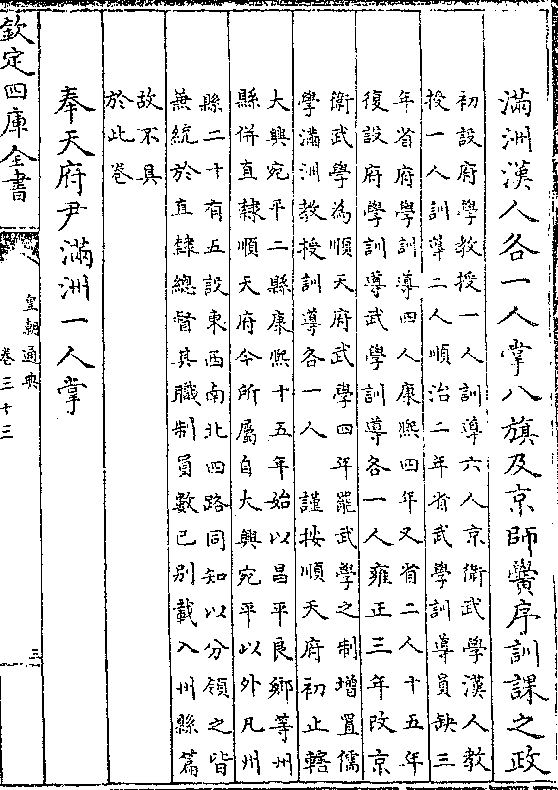 滿洲漢人各一人掌八旗及京師黌序訓課之政
初設府學教授一人訓導六人京衛武學漢人教
授一人訓導二人順治二年省武學訓導員缺三
年省府學訓導四人康熙四年又省二人十五年
復設府學訓導武學訓導各一人雍正三年改京
衛武學為順天府武學四年罷武學之制增置儒
學滿洲教授訓導各一人 謹按順天府初止轄
大興宛平二縣康熙十五年始以昌平良鄉等州
縣併直隸順天府今所屬自大興宛平以外凡州
縣二十有五設東西南北四路同知以分領之皆
兼統於直隸總督其職制員數已別載入州縣篇
故不具
於此卷
奉天府尹滿洲一人掌
欽定四庫全書
皇朝通典
卷三十三
三